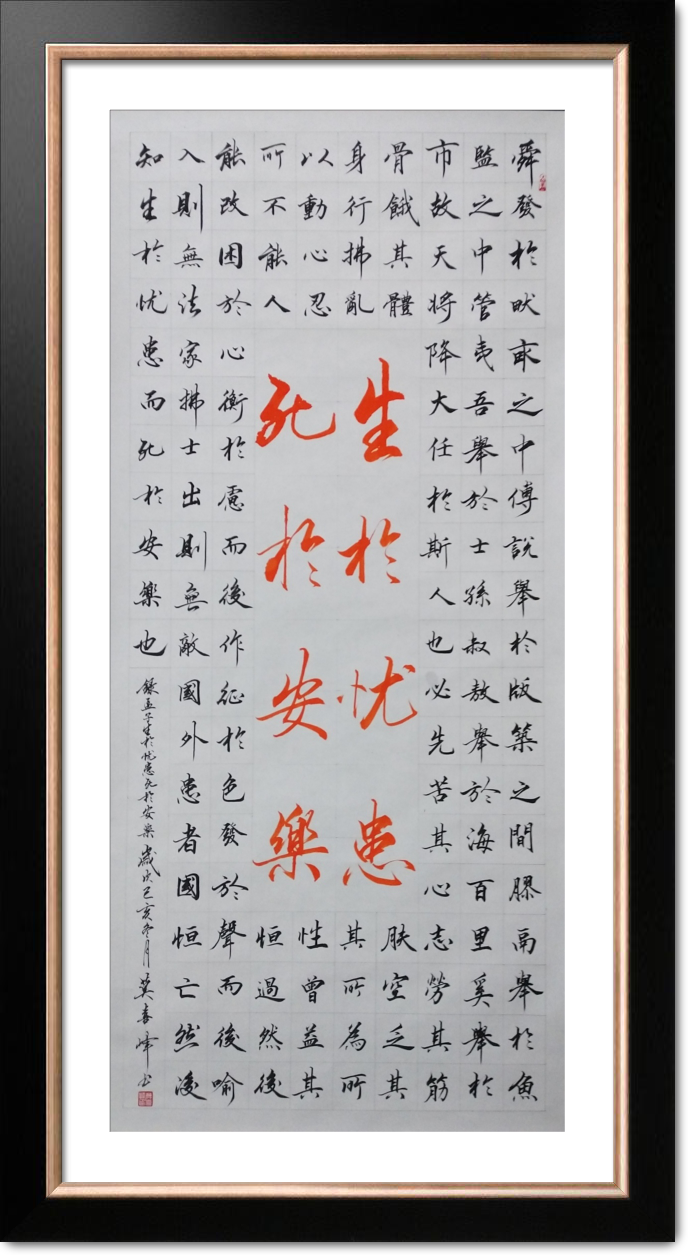 舜發於畎畝之中傅說舉於版築之間膠鬲舉於魚
監之中管夷吾舉於士孫叔敖舉於海百里奚舉於
市故天将降大任於斯人也必先苦其心志勞其筋
骨餓其體
肤空乏其
身行拂亂
其所為所
以動心忍
性曾益其
所不能人
恒過然後
能改困於心衡於慮而後作征於色發於聲而後喻
入則無法家拂士出則無敵國外患者國恒亡然後
知生於忧患而死於安樂也
生於忧患
死於安樂
録孟子生於忧患死於安樂 歲次己亥冬月 莫 峰书